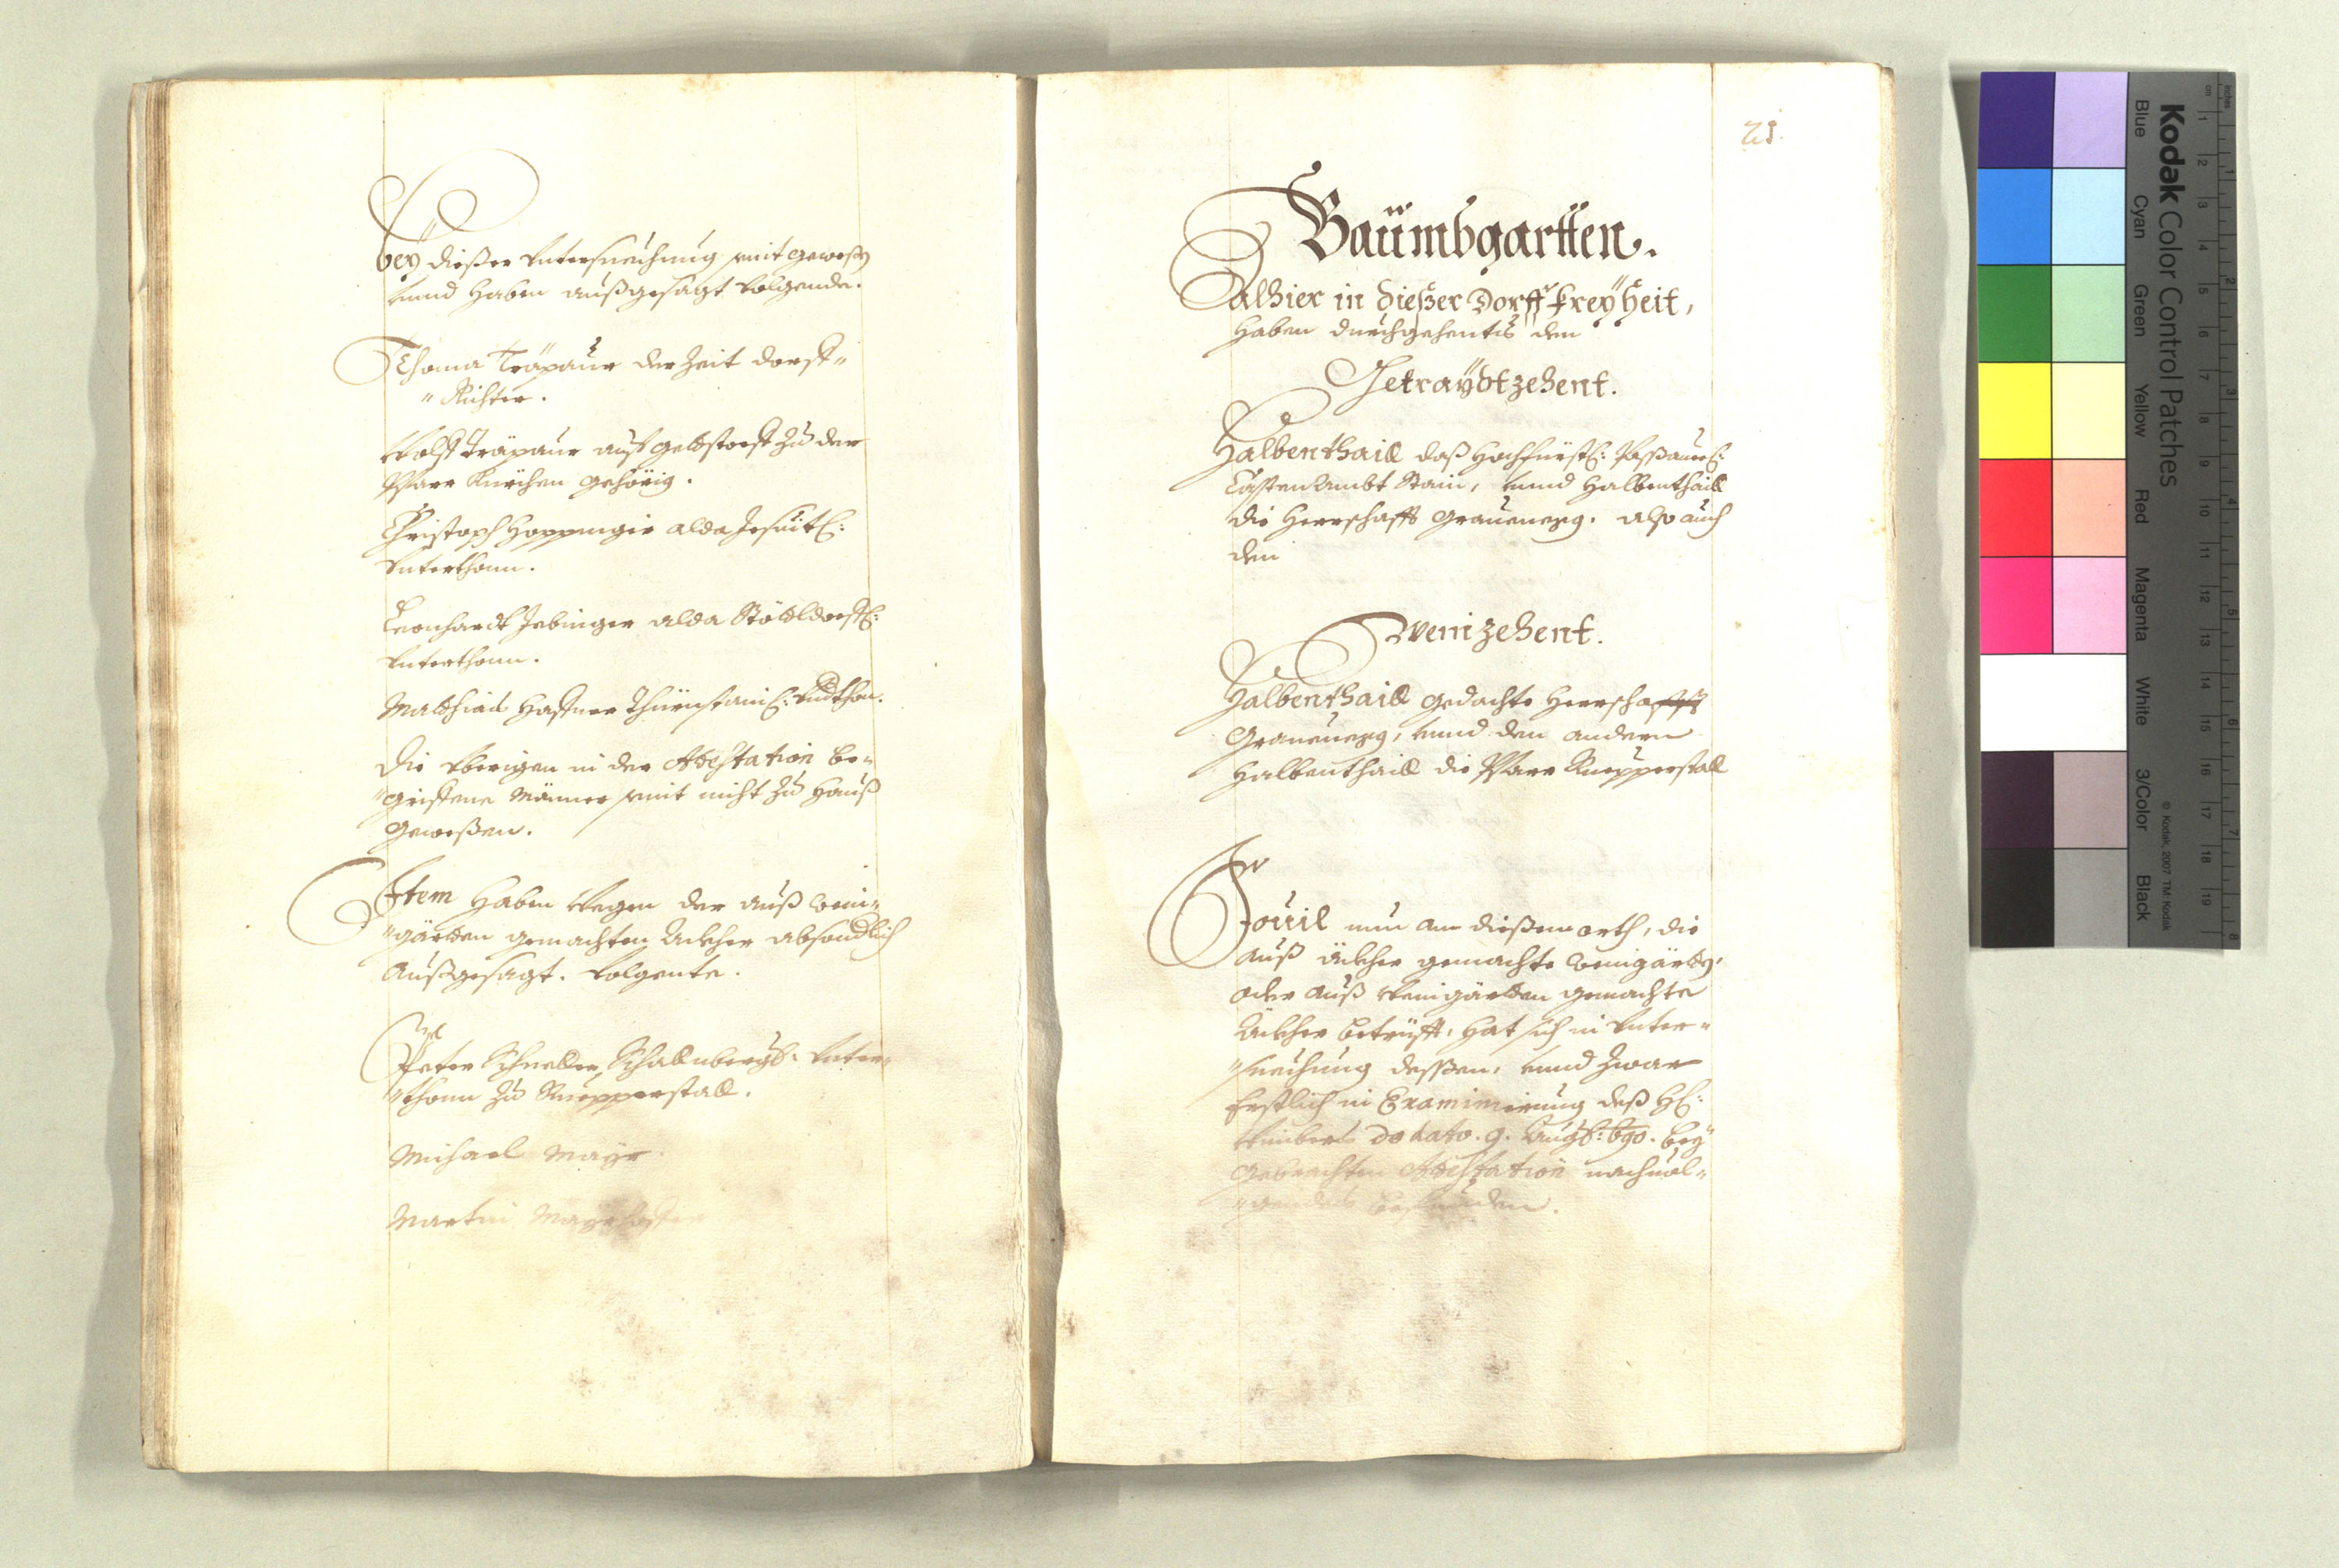 Beÿ dießer Untersuechung seint geweßen
unnd haben außgesagt volgende.
Thoma Träpaur der Zeit dorff-
-Richter.
Wolff Träpaur auf geldtstorff zu der
Pfarr Kürchen gehörig.
Christoph Hoppinger alda Jesuitl:
Unterthonn.
Leonhardt Jebinger alda Stötldorfl:
Unterthonn.
Matthias Hafner Thürnstainl: Undthon.
Die Vberigen in der Attestation be-
-griffene Männer seint nicht zu Hauß
geweßen.
Item haben Wegen der auß Wein-
-gärtten gemachten Äckher absondlich
außgesagt. Volgente.
Peter Schneller Schallnbergl: Unter-
-thonn zu Ruepperstall.
Michael Mayr
Martin Mayrhoffer
21.
Baümbgartten.
Alhier in dießer Dorff Freÿheit,
haben durchgehents den
Getraÿdtzehent.
Halbenthaill daß Hochfürstl: Passauerl:
Casten Ambt Stain, unnd Halbenthaill
die Herrschafft Grauenegg. also auch
den
Weinzehent.
Halbenthaill gedachte Herrschafft
Grauenegg, unnd den andern
Halbenthaill die Pfarr Ruepperstall
Souil nun an dießem orth, die
auß äckher gemachte Weingärtten,
oder auß Weingärtten gemachte
Äckher betrüfft, hat sich in Unter-
-suechung dessen, unnd zwar
Erstlich in Examinierung deß Hl:
de dato. 9. Augl: 690. beÿ
gebrachten Attestation nachuol-
-gendes befunden.